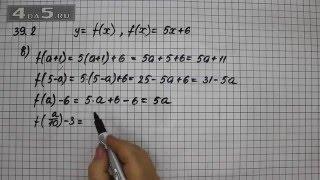 4DA5.RU
39.2 y = f(x) , f(x) = 5x+6
в) f(a+1) = 5(a+1)+6 = 5a+5+6 = 5a+11
f(5-a) = 5·(5-a)+6 = 25-5a+6 = 31-5a
f(a)-6 = 5·a+6-6 = 5a
f(a/10)-3 =